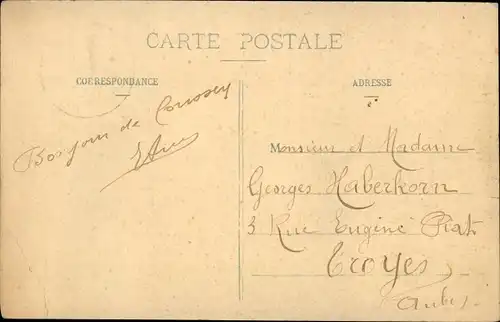 CARTE POSTALE
CORRESPONDANCE
ADRESSE
Bonjour de Coussey
Monsieur et Madame
Georges Haberkorn
3 Rue Eugène Piat
Troyes
Aube